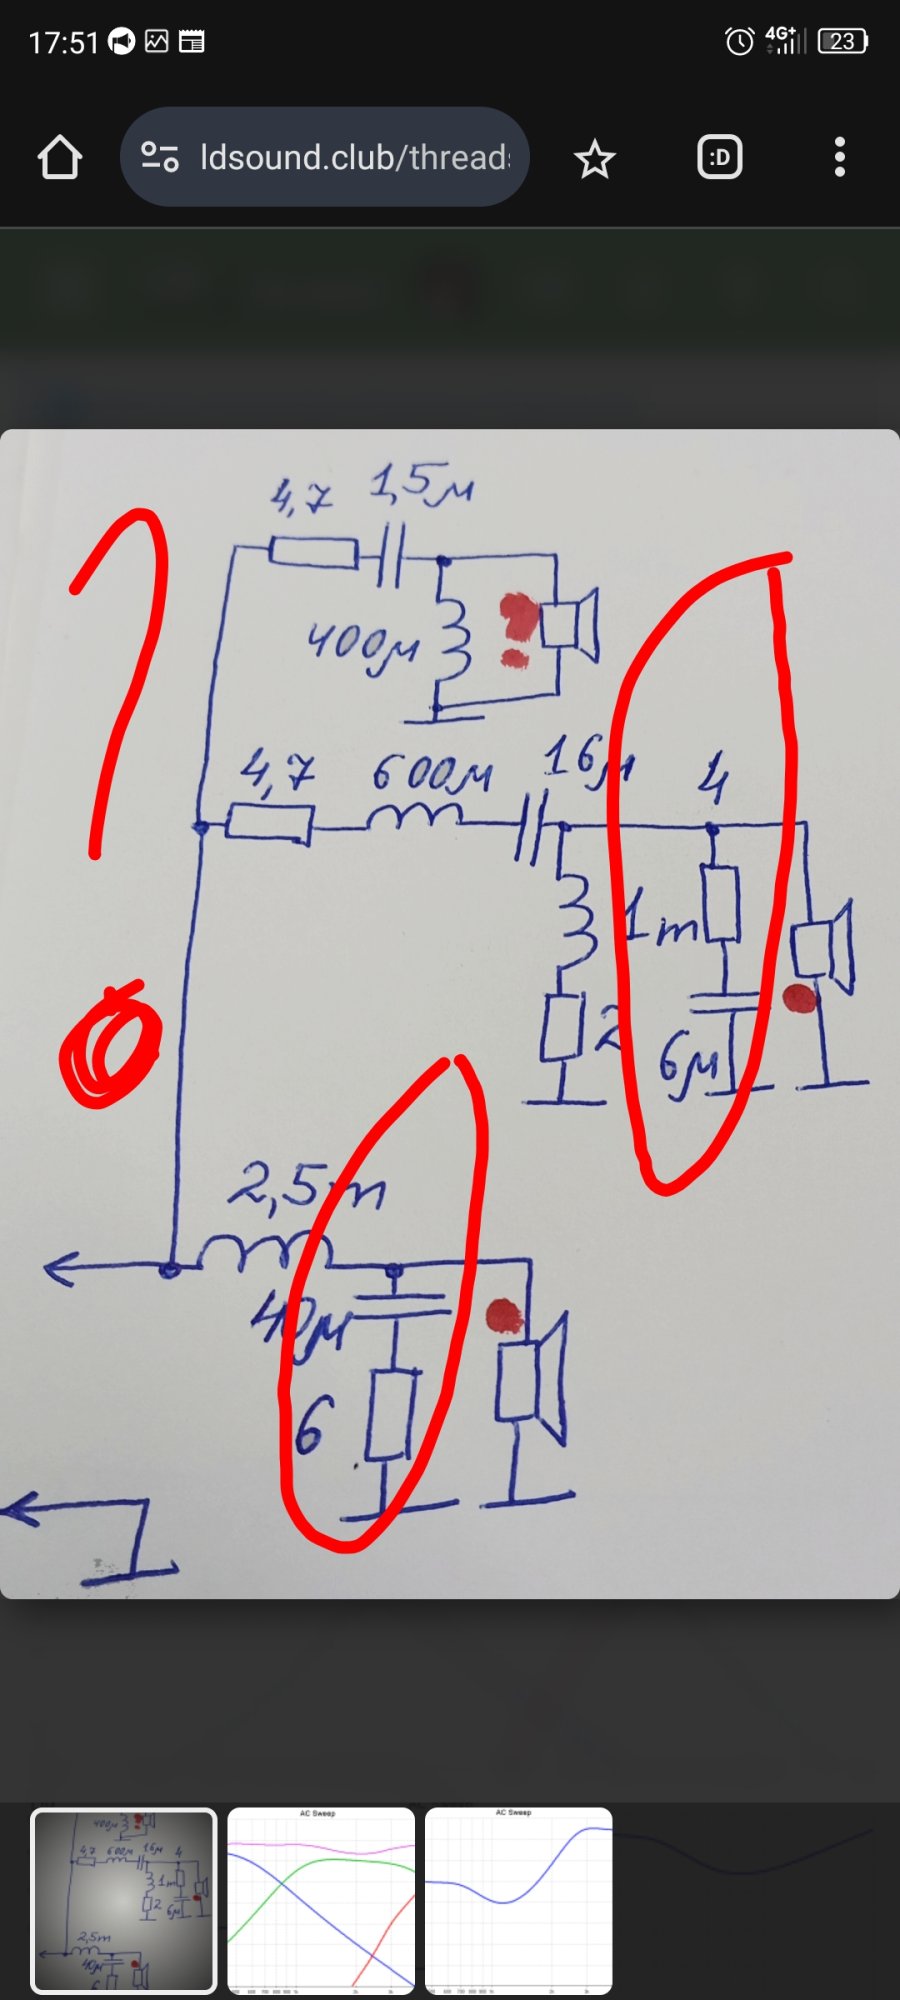 17:51
4G+
23
ldsound.club/thread
:D
4,7 1,5м
400м
4,7 600м 16м 4
1m
2
6м
2,5m
40м
6
AC Sweep
AC Sweep